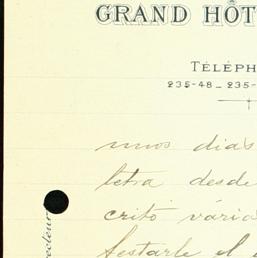 GRAND HÔT
TÉLÉPH
235-48 _ 235-
unos dias
letra desde
crito vária
testarle el
recteur